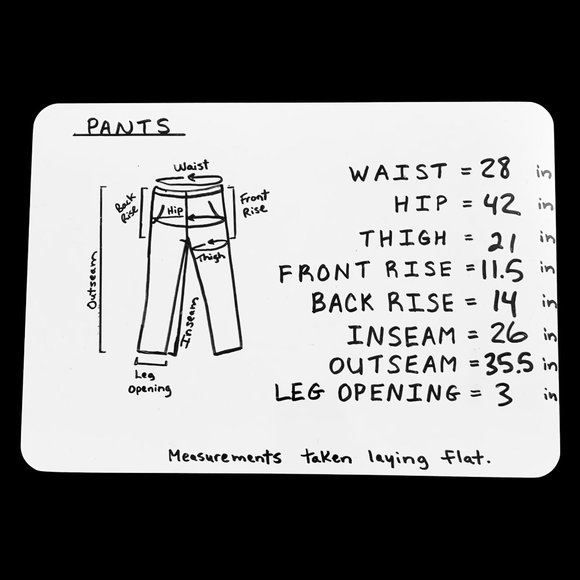 PANTS
Waist
Back Rise
Front Rise
Hip
Thigh
Outseam
Inseam
Leg Opening
WAIST = 28 in
HIP = 42 in
THIGH = 21 in
FRONT RISE = 11.5 in
BACK RISE = 14 in
INSEAM = 26 in
OUTSEAM = 35.5 in
LEG OPENING = 3 in
Measurements taken laying flat.